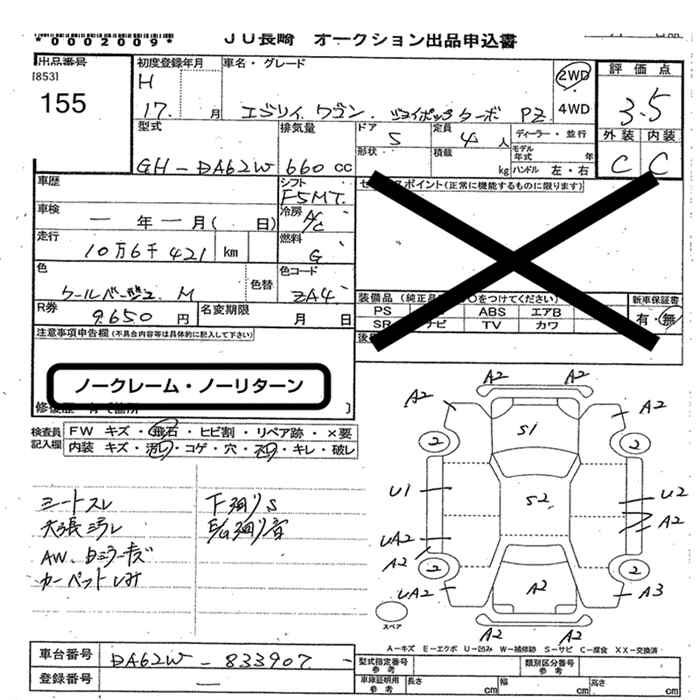 *0002009*
JU長崎 オークション出品申込書
出品番号
[853]
155
初度登録年月
H
17. 月
車名・グレード
エブリイ ワゴン. ジョイポップターボ PZ.
2WD
4WD
評価点
3.5
外装 内装
C C
型式
GH-DA62W
排気量
660 cc
ドア
5
定員
4 人
ディーラー・並行
形状
積載
kg
モデル年式 年
ハンドル 左・右
車歴
シフト
F5MT.
セ ポイント(正常に機能するものに限ります)
車検
ー 年 ー 月( 日)
冷房
A/C
走行
10万6千421 km
燃料
G
色
クールベージュ. M
色替
色コード
ZA4.
装備品(純正品 ○をつけてください)
PS ABS エアB
SR ナビ TV カワ
新車保証書
有・無
R券
9650 円
名変期限
月 日
注意事項申告欄(不具合内容等は具体的に記入して下さい)
ノークレーム・ノーリターン
修復歴
検査員記入欄
FW キズ・飛石・ヒビ割・リペア跡・×要
内装 キズ・汚れ・コゲ・穴・スレ・キレ・破レ
シートスレ
天張ヨゴレ
AW、
カーペット
下廻りS
E/G廻り音
A2 A2
A2 A2
S1
2 2
U1
S2
U2
A2
UA2
A2
2 2
UA2
A2
A3
A2 A2
スペア
A-キズ E-エクボ U-凹み W-補修跡 S-サビ C-腐食 XX-交換済
車台番号
DA62W-833907
登録番号
ー
型式指定番号 参考
類別区分番号 参考
車庫証明用 参考
長さ cm
幅 cm
高さ cm